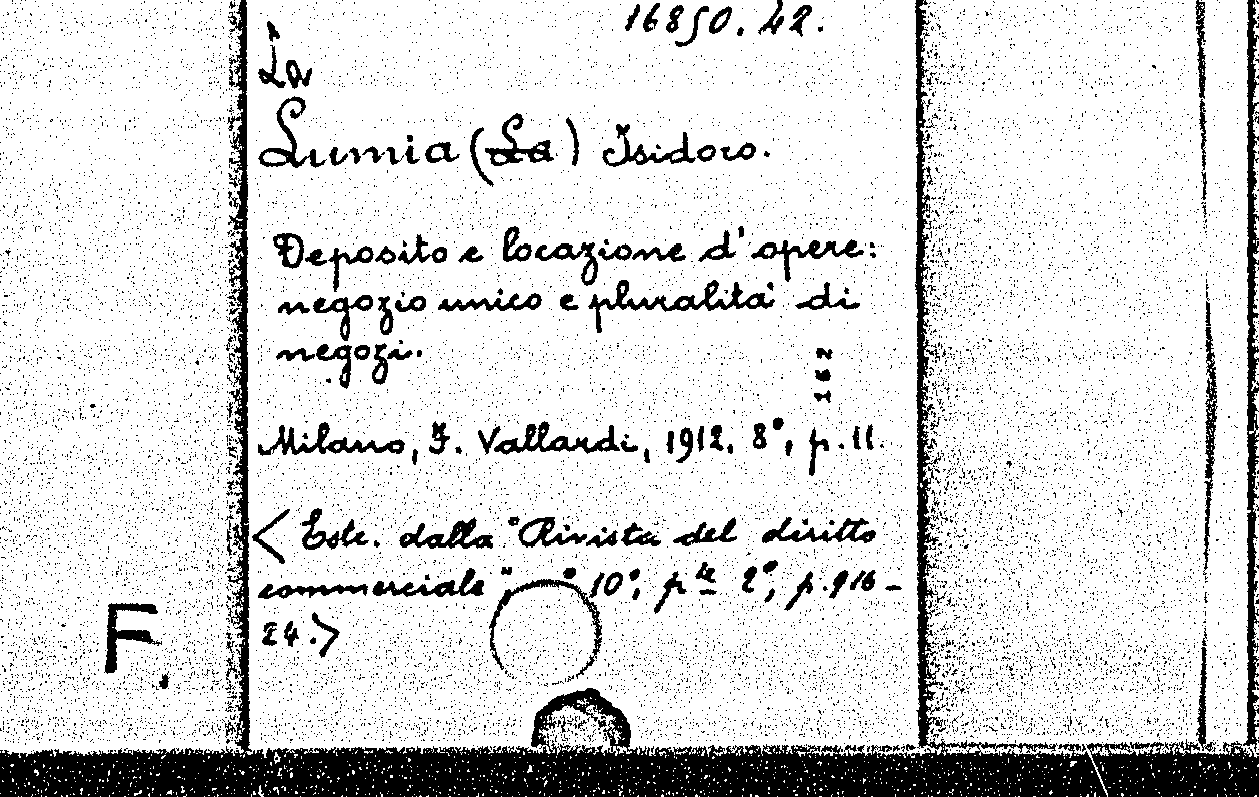 16850.42.
La
Lumia (La) Isidoro.
Deposito e locazione d'opere:
negozio unico e pluralità di
negozi.
162
Milano, F. Vallardi, 1912. 8°, p. 11.
<Estr. dalla "Rivista del diritto
commerciale", 10°, pte 2°, p. 916-
24.>
F.